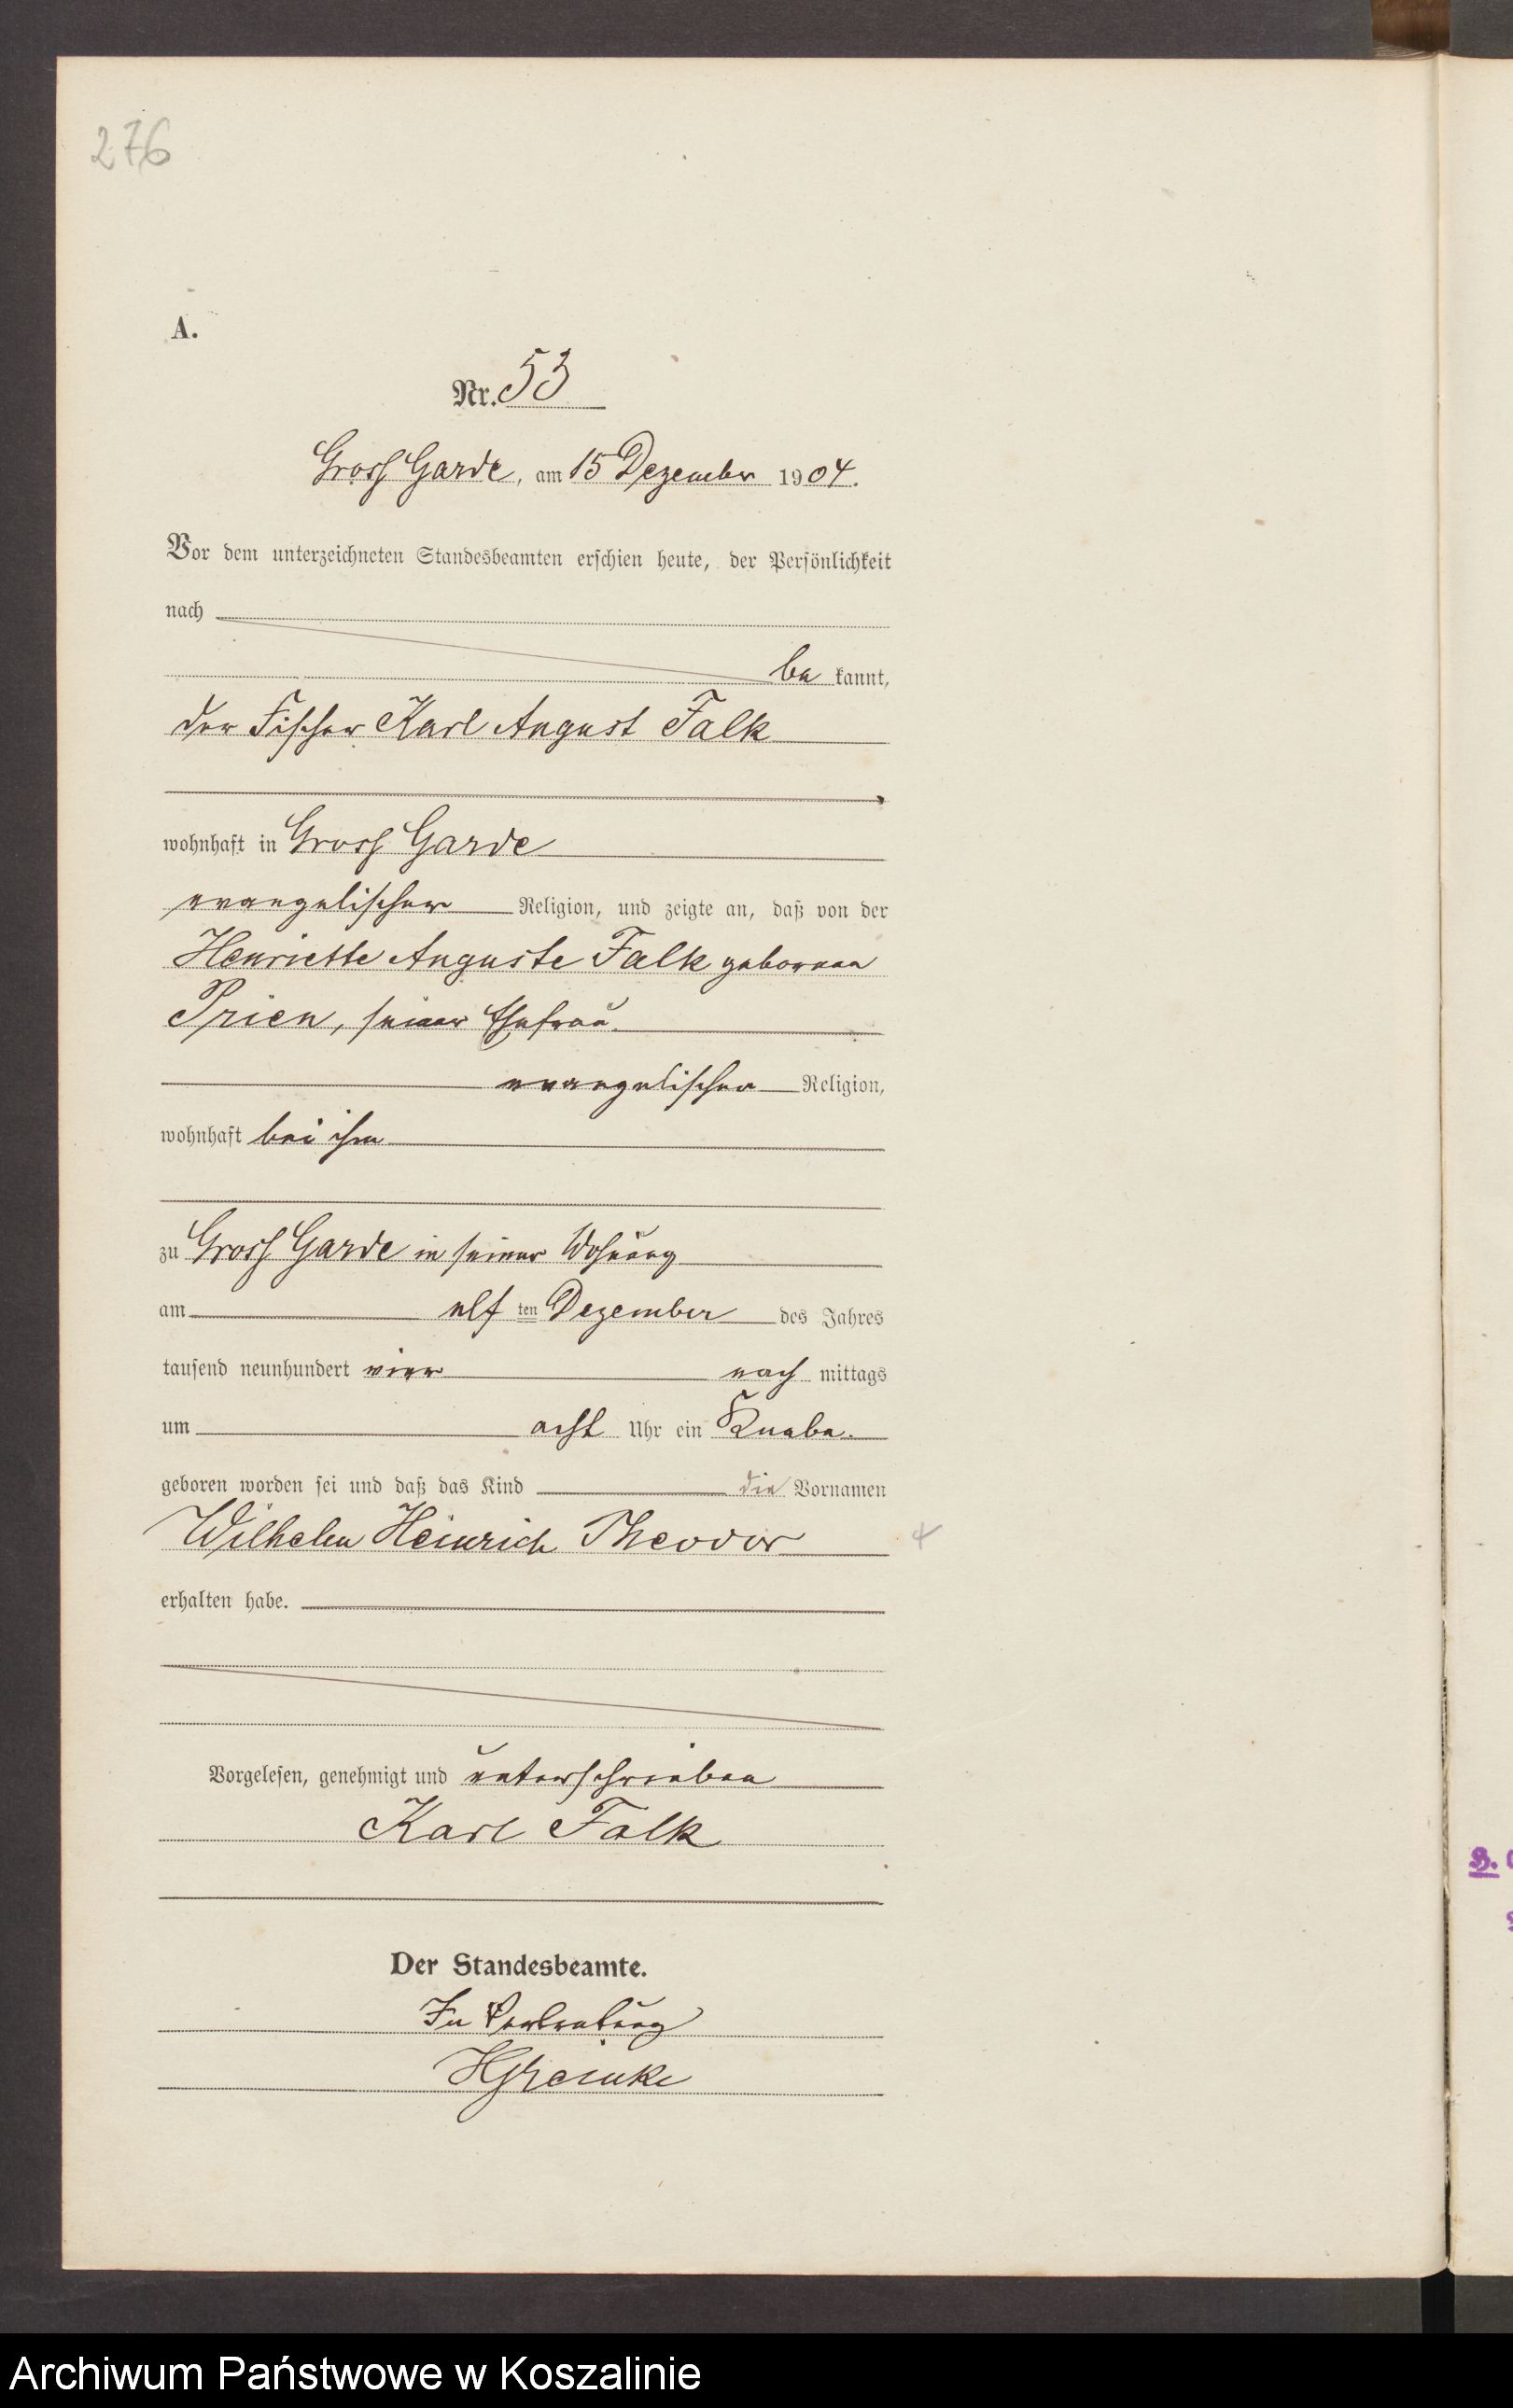 276
A.
Nr. 53
Gross Garde, am 15 Dezember 1904.
Vor dem unterzeichneten Standesbeamten erschien heute, der Persönlichkeit
nach
be kannt,
der Fischer Karl August Falk
wohnhaft in Gross Garde
evangelischer Religion, und zeigte an, daß von der
Henriette Auguste Falk geborenen
Prien, seiner Ehefrau
evangelischer Religion,
wohnhaft bei ihm
zu Gross Garde in seiner Wohnung
am elf ten Dezember des Jahres
tausend neunhundert vier nach mittags
um acht Uhr ein Knabe.
geboren worden sei und daß das Kind die Vornamen
Wilhelm Heinrich Theodor
erhalten habe.
Vorgelesen, genehmigt und unterschrieben
Karl Falk
Der Standesbeamte.
In Vertretung
B.
Archiwum Państwowe w Koszalinie